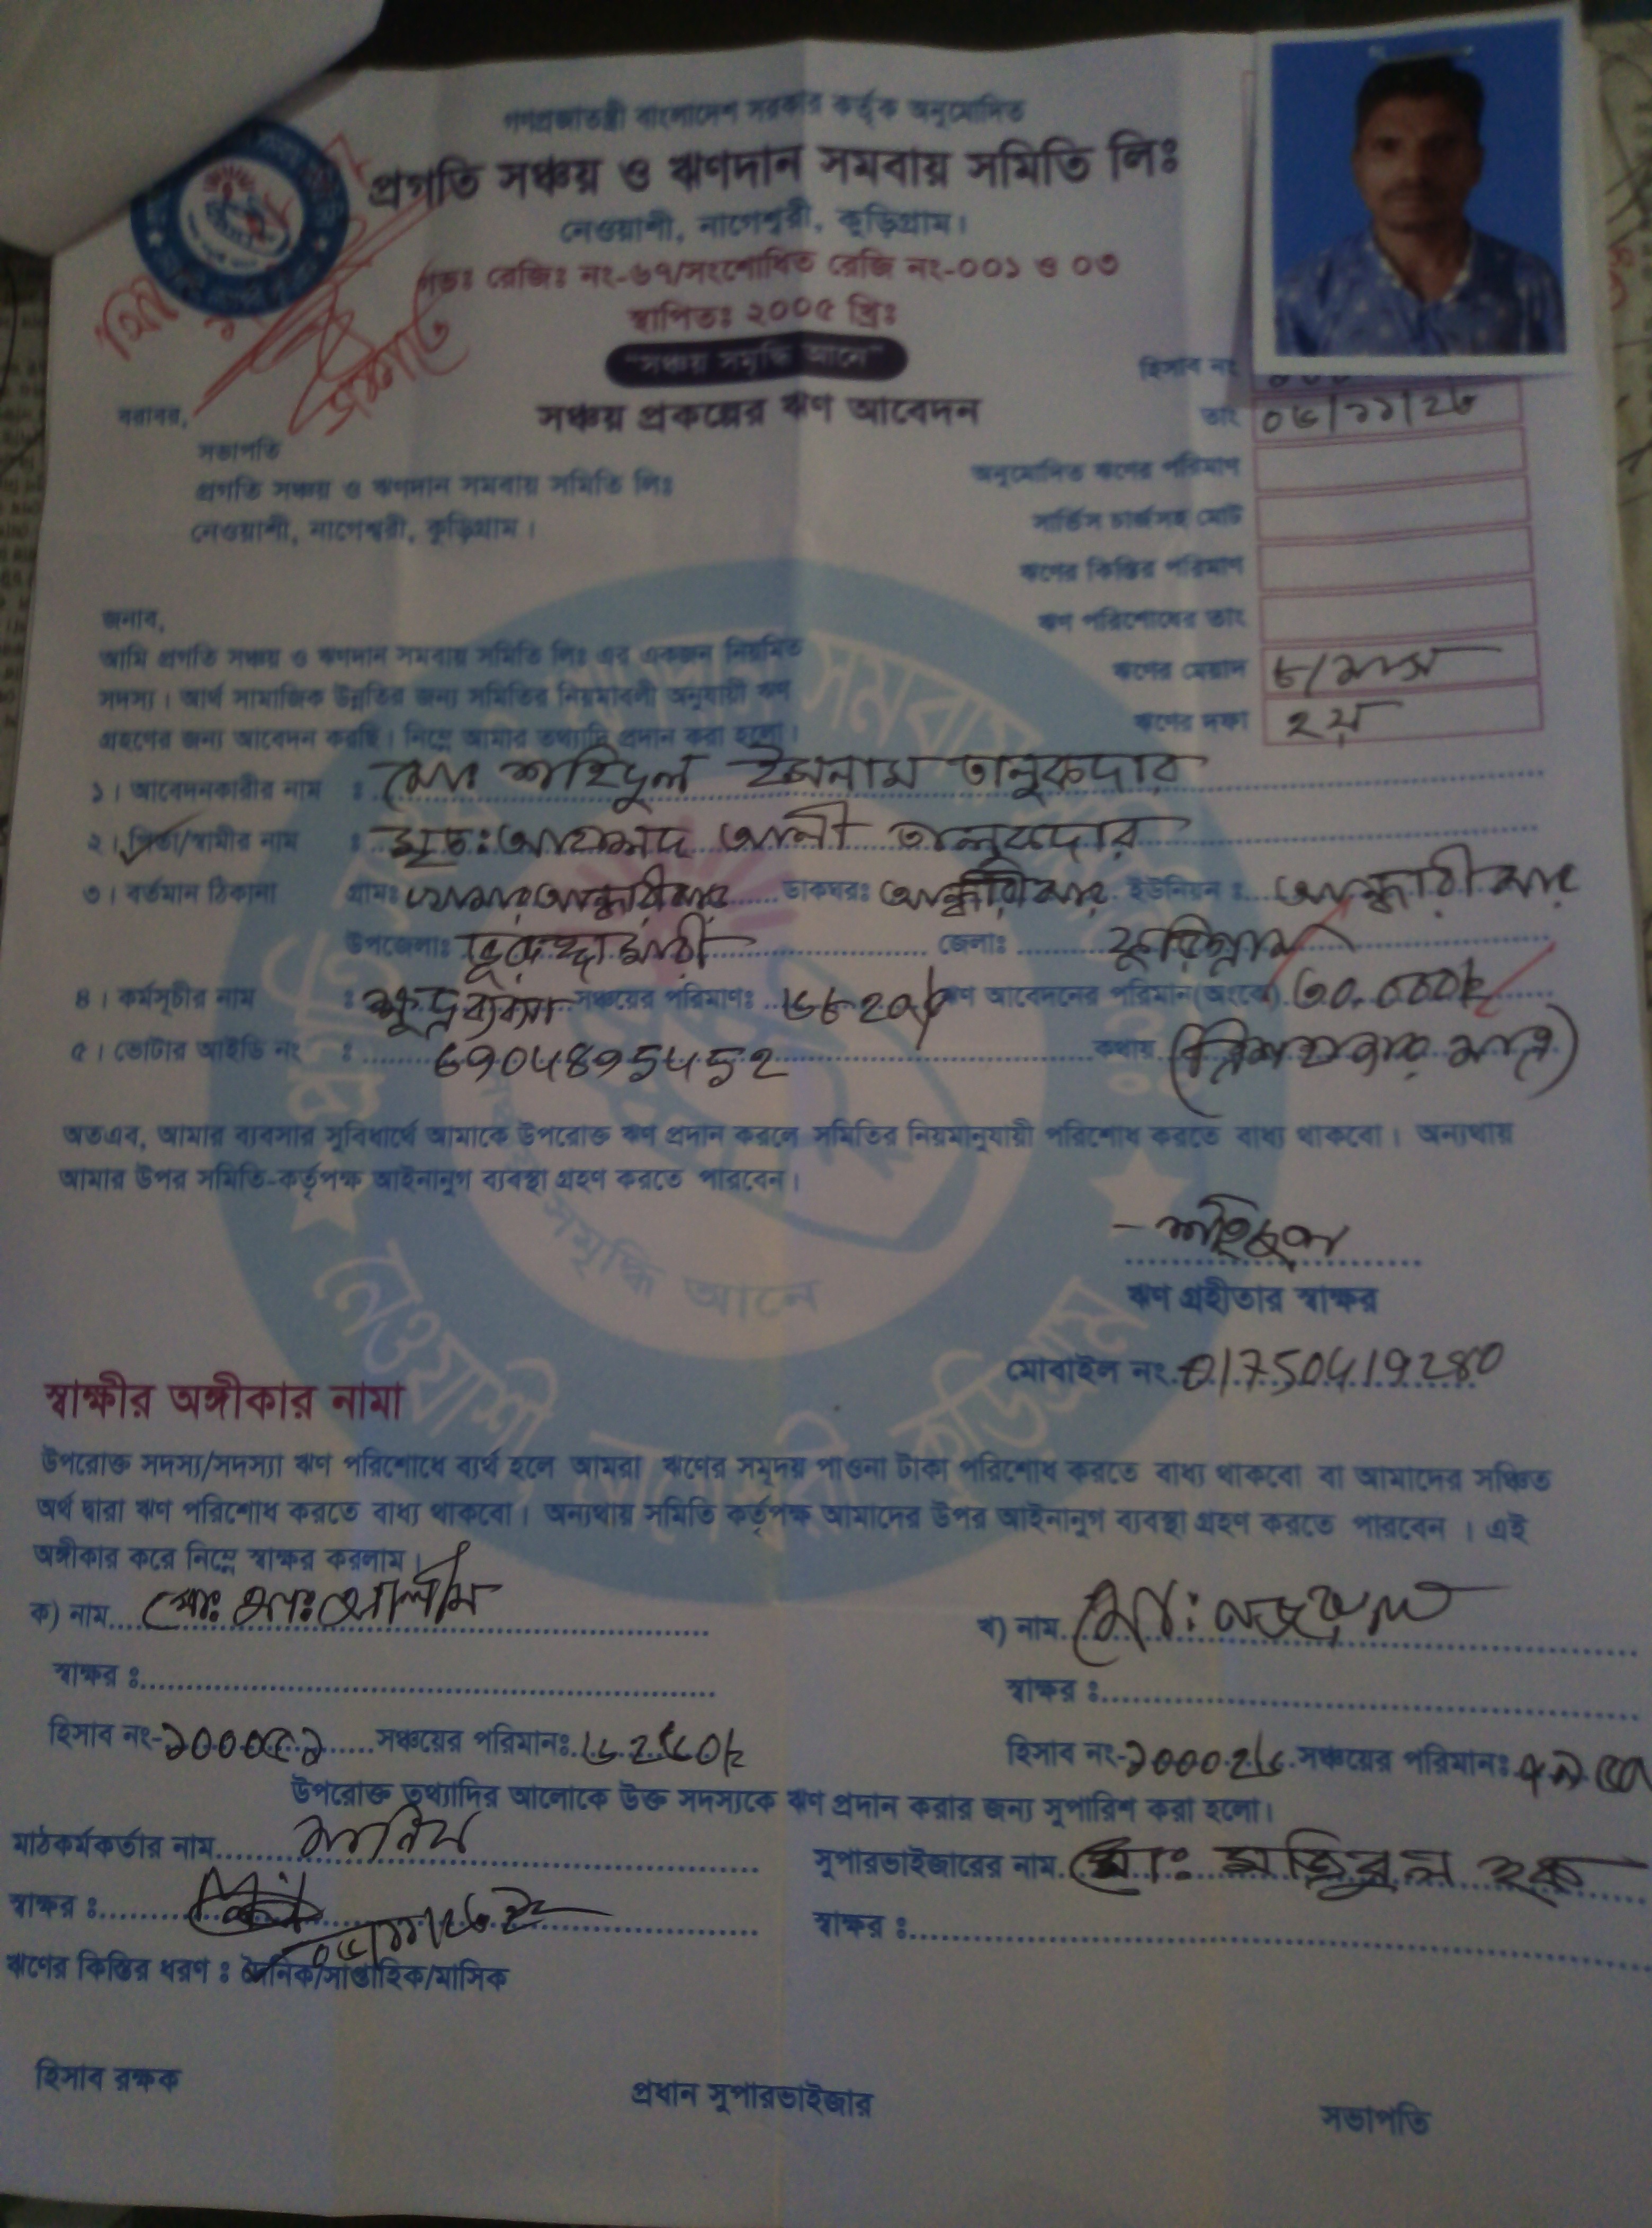 গণপ্রজাতন্ত্রী বাংলাদেশ সরকার কর্তৃক অনুমোদিত
প্রগতি সঞ্চয় ও ঋণদান সমবায় সমিতি লিঃ
নেওয়াশী, নাগেশ্বরী, কুড়িগ্রাম।
গভঃ রেজিঃ নং-৬৭/সংশোধিত রেজি নং-০০১ ও ০৩
স্থাপিতঃ ২০০৫ খ্রিঃ
"সঞ্চয় সমৃদ্ধি আনে"
সঞ্চয় প্রকল্পের ঋণ আবেদন
হিসাব নং
তাং ০৬/১১/২৩
অনুমোদিত ঋণের পরিমাণ
সার্ভিস চার্জসহ মোট
ঋণের কিস্তির পরিমাণ
ঋণ পরিশোধের তাং
ঋণের মেয়াদ ৮/মাস
ঋণের দফা ২য়
বরাবর,
সভাপতি
প্রগতি সঞ্চয় ও ঋণদান সমবায় সমিতি লিঃ
নেওয়াশী, নাগেশ্বরী, কুড়িগ্রাম।
জনাব,
আমি প্রগতি সঞ্চয় ও ঋণদান সমবায় সমিতি লিঃ এর একজন নিয়মিত
সদস্য। আর্থ সামাজিক উন্নতির জন্য সমিতির নিয়মাবলী অনুযায়ী ঋণ
গ্রহণের জন্য আবেদন করছি। নিম্নে আমার তথ্যাদি প্রদান করা হলো।
১। আবেদনকারীর নাম : মোঃ শহিদুল ইসলাম তালুকদার
২। পিতা/স্বামীর নাম : মৃতঃ আহাম্মদ আলী তালুকদার
৩। বর্তমান ঠিকানা গ্রামঃ খামার আন্ধারীঝার ডাকঘরঃ আন্ধারীঝার ইউনিয়ন : আন্ধারীঝার
উপজেলাঃ ভূরুঙ্গামারী জেলাঃ কুড়িগ্রাম
৪। কর্মসূচীর নাম : ক্ষুদ্র ব্যবসা সঞ্চয়ের পরিমাণঃ ঋণ আবেদনের পরিমান(অংকে) ৩০,০০০/
৫। ভোটার আইডি নং : 6904895452 কথায় (ত্রিশ হাজার মাত্র)
অতএব, আমার ব্যবসার সুবিধার্থে আমাকে উপরোক্ত ঋণ প্রদান করলে সমিতির নিয়মানুযায়ী পরিশোধ করতে বাধ্য থাকবো। অন্যথায়
আমার উপর সমিতি-কর্তৃপক্ষ আইনানুগ ব্যবস্থা গ্রহণ করতে পারবেন।
শহিদুল
ঋণ গ্রহীতার স্বাক্ষর
মোবাইল নং 01750419280
স্বাক্ষীর অঙ্গীকার নামা
উপরোক্ত সদস্য/সদস্যা ঋণ পরিশোধে ব্যর্থ হলে আমরা ঋণের সমুদয় পাওনা টাকা পরিশোধ করতে বাধ্য থাকবো বা আমাদের সঞ্চিত
অর্থ দ্বারা ঋণ পরিশোধ করতে বাধ্য থাকবো। অন্যথায় সমিতি কর্তৃপক্ষ আমাদের উপর আইনানুগ ব্যবস্থা গ্রহণ করতে পারবেন । এই
অঙ্গীকার করে নিম্নে স্বাক্ষর করলাম।
ক) নাম মোঃ আঃ আলীম
খ) নাম মোঃ নজরুল
স্বাক্ষর :
স্বাক্ষর :
হিসাব নং-১০০০৫১ সঞ্চয়ের পরিমানঃ ৬২৫০/
হিসাব নং-১০০০২৬ সঞ্চয়ের পরিমানঃ
উপরোক্ত তথ্যাদির আলোকে উক্ত সদস্যকে ঋণ প্রদান করার জন্য সুপারিশ করা হলো।
মাঠকর্মকর্তার নাম
সুপারভাইজারের নাম মোঃ মতিবুল হক
স্বাক্ষর : ০৬/১১/২৩ ইং
স্বাক্ষর :
ঋণের কিস্তির ধরণ : দৈনিক/সাপ্তাহিক/মাসিক
হিসাব রক্ষক
প্রধান সুপারভাইজার
সভাপতি